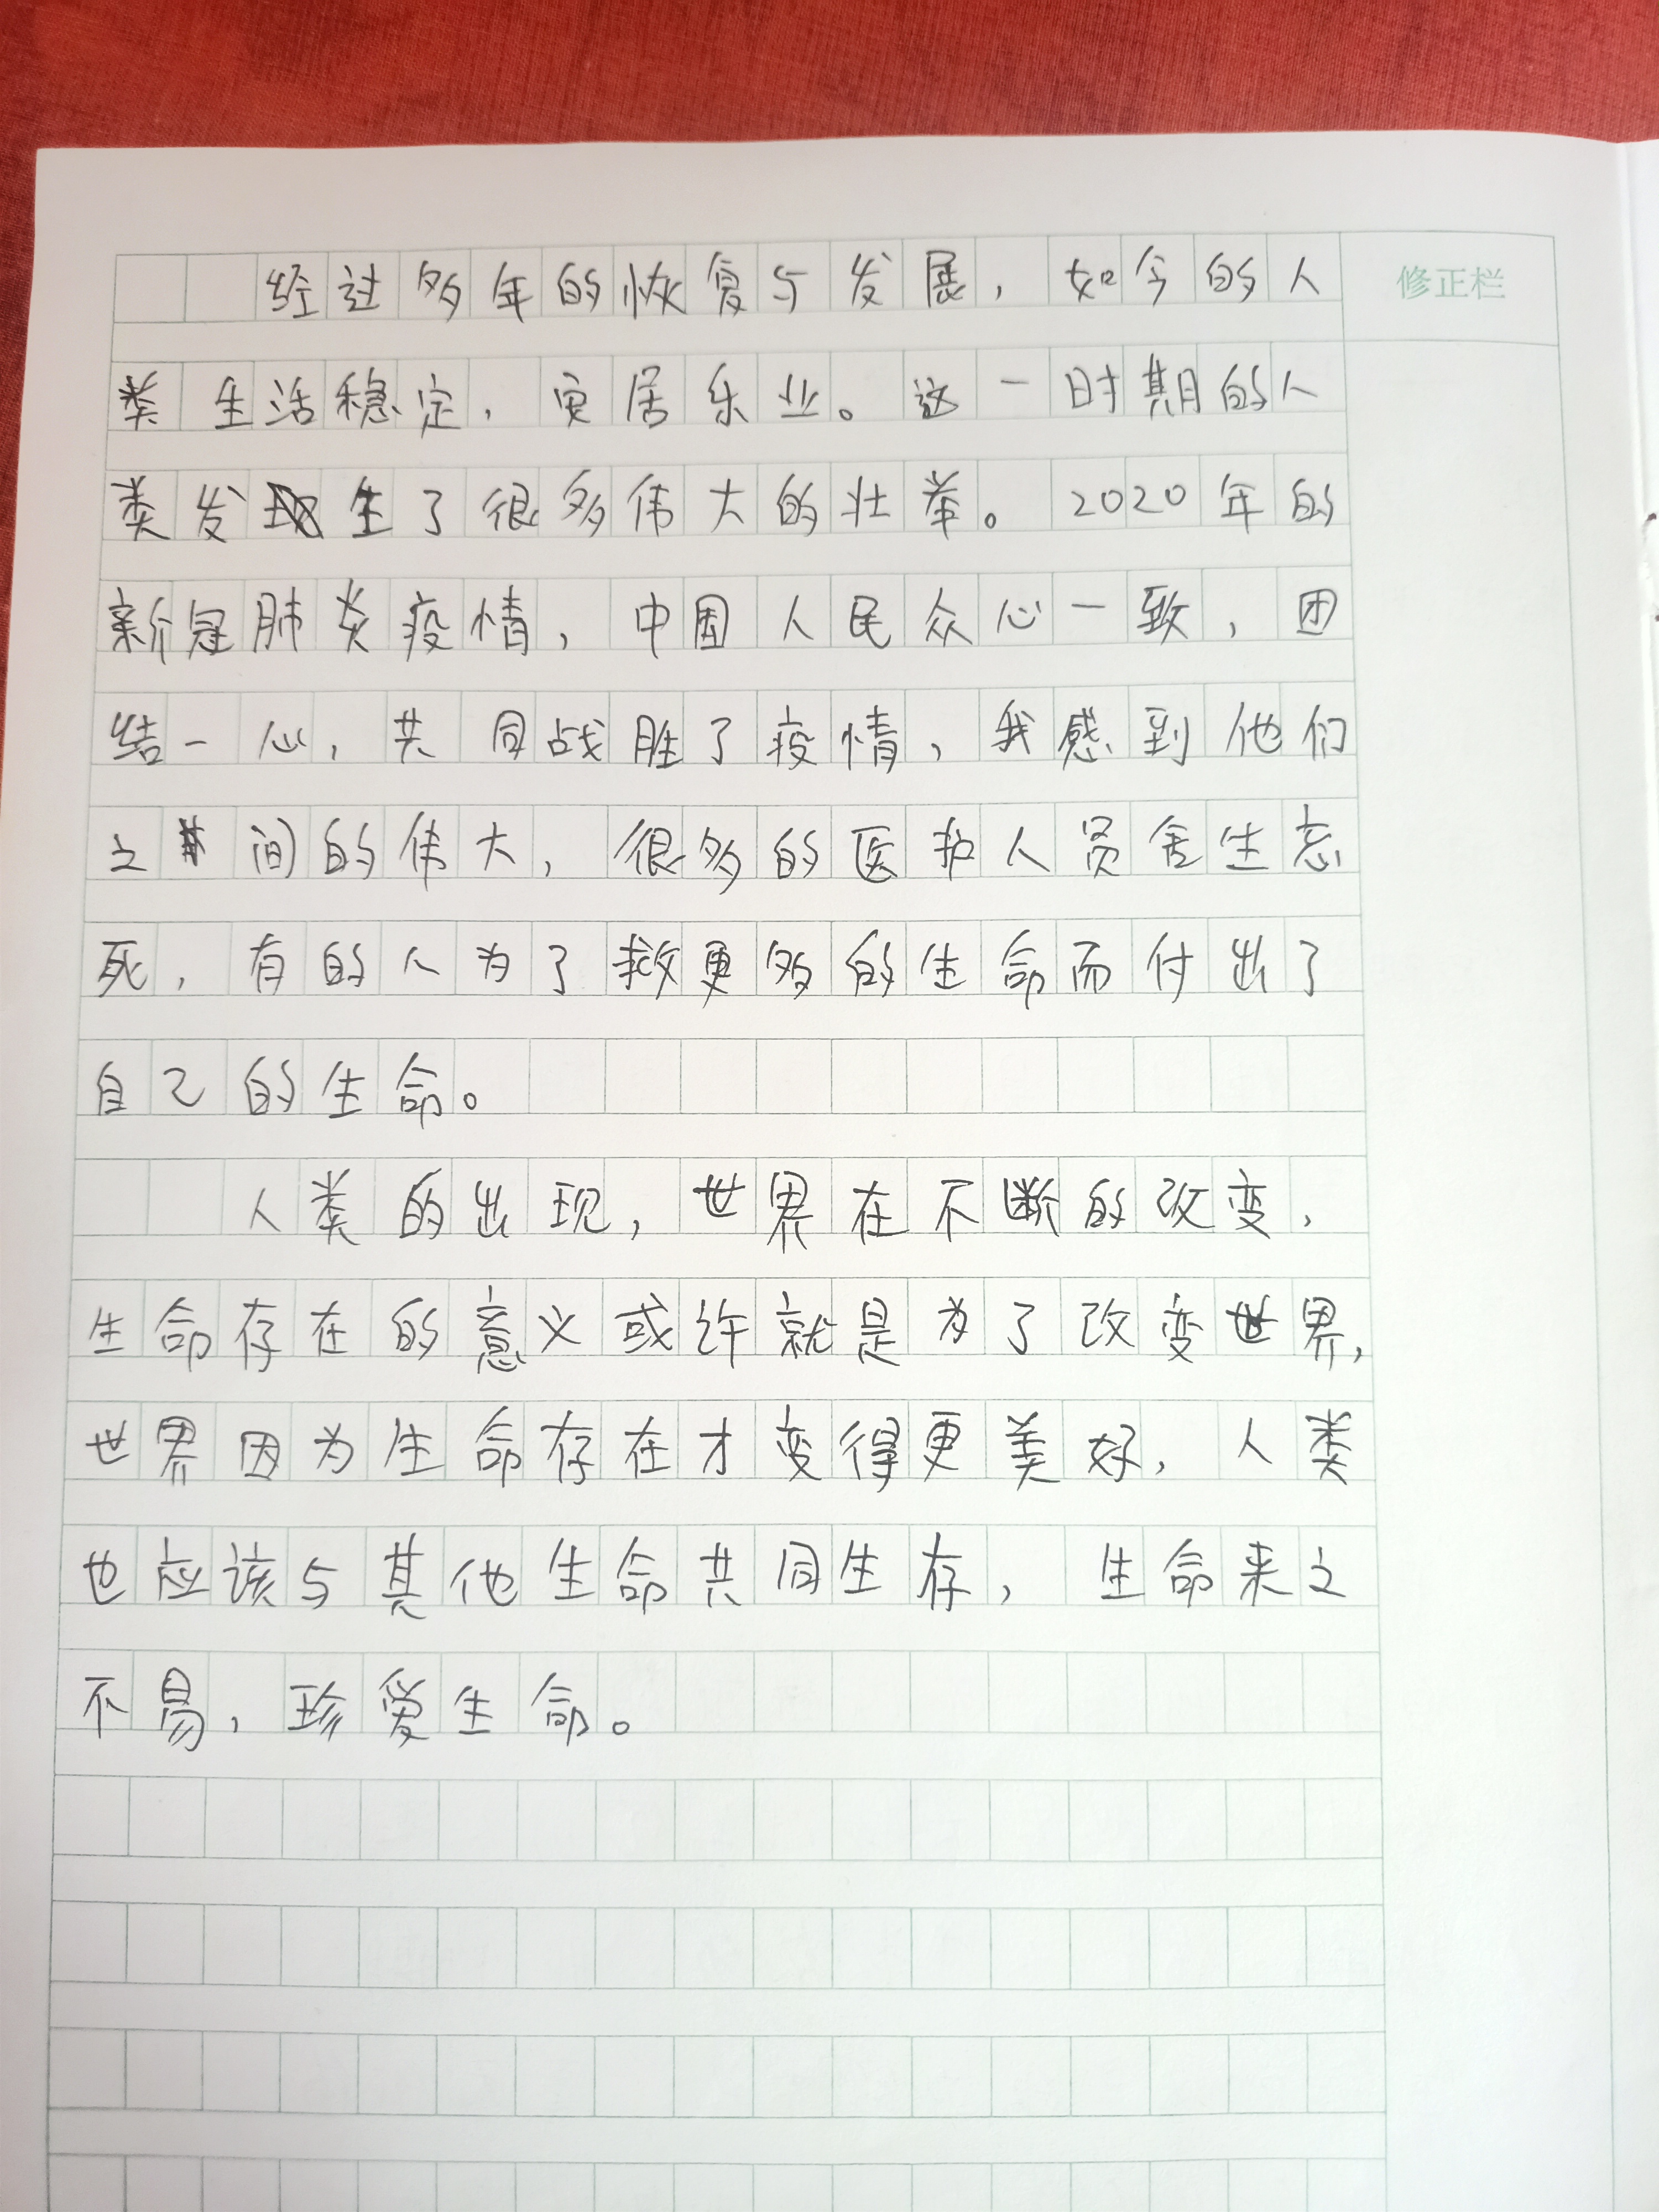 经过多年的恢复与发展，如今的人
修正栏
类生活稳定，安居乐业。这一时期的人
类发生了很多伟大的壮举。2020年的
新冠肺炎疫情，中国人民众心一致，团
结一心，共同战胜了疫情，我感到他们
之间的伟大，很多的医护人员舍生忘
死，有的人为了救更多的生命而付出了
自己的生命。
人类的出现，世界在不断的改变，
生命存在的意义或许就是为了改变世界，
世界因为生命存在才变得更美好，人类
也应该与其他生命共同生存，生命来之
不易，珍爱生命。